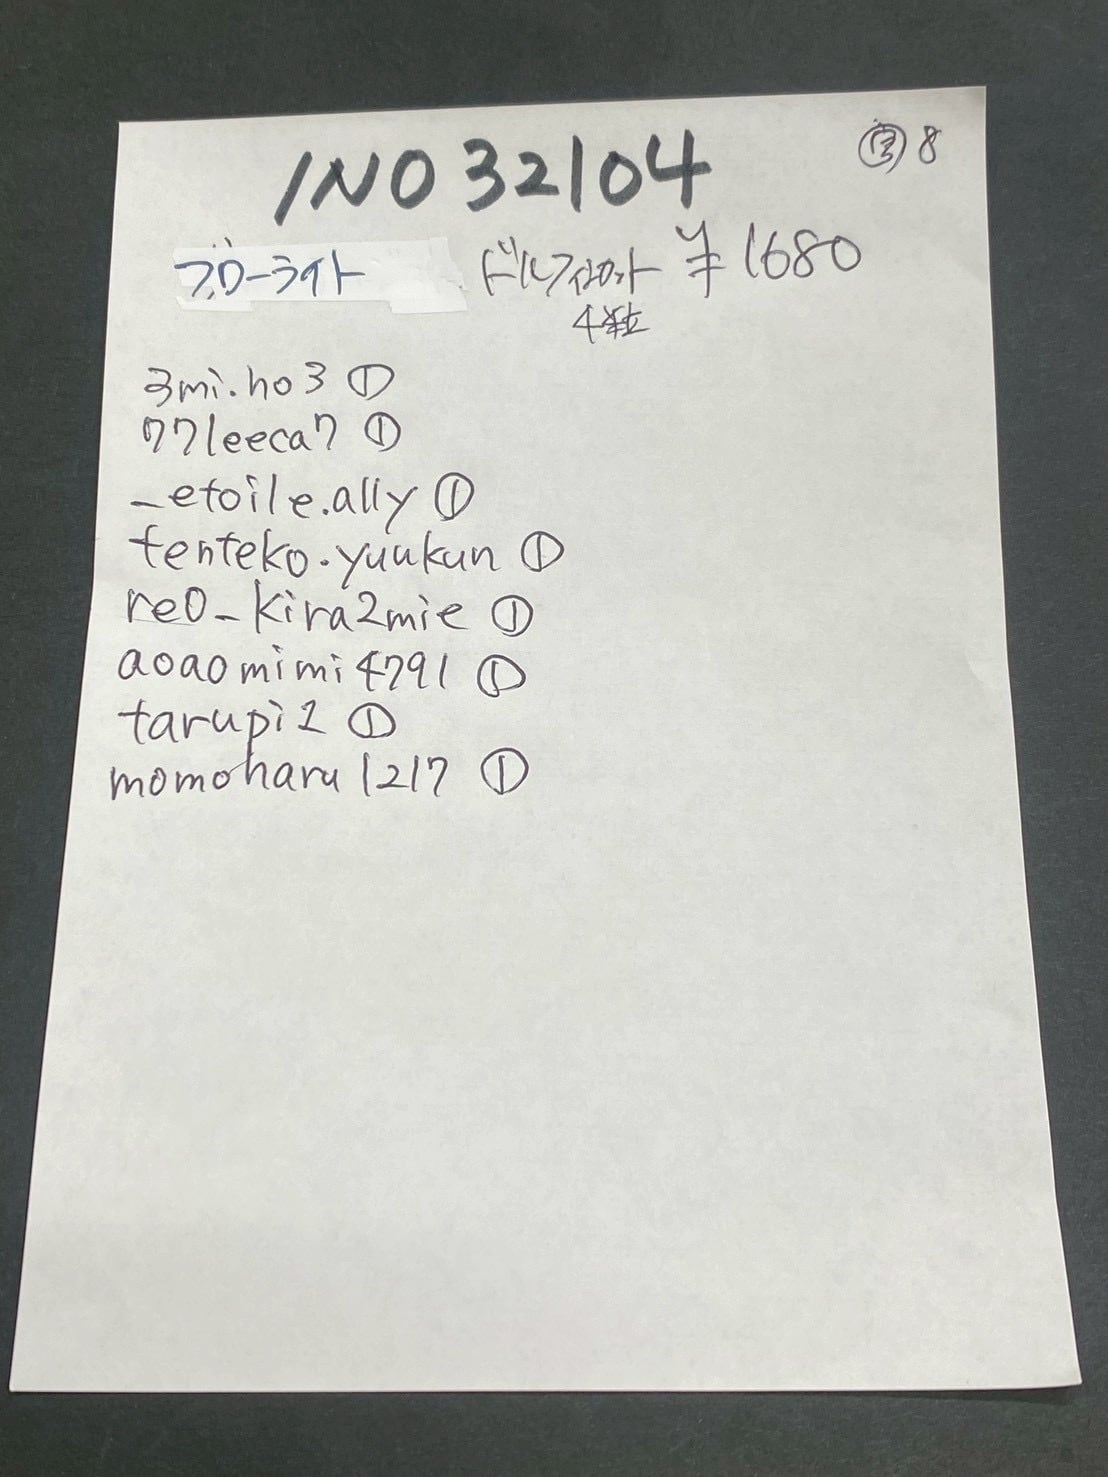 INO 32104
8
フローライト ドルフィンカット ¥1680
4粒
3mi.ho3 ①
77leeca7 ①
_etoile.ally ①
tenteko.yuukun ①
re0_kira2mie ①
aoaomimi4791 ①
tarupi2 ①
momoharu1217 ①